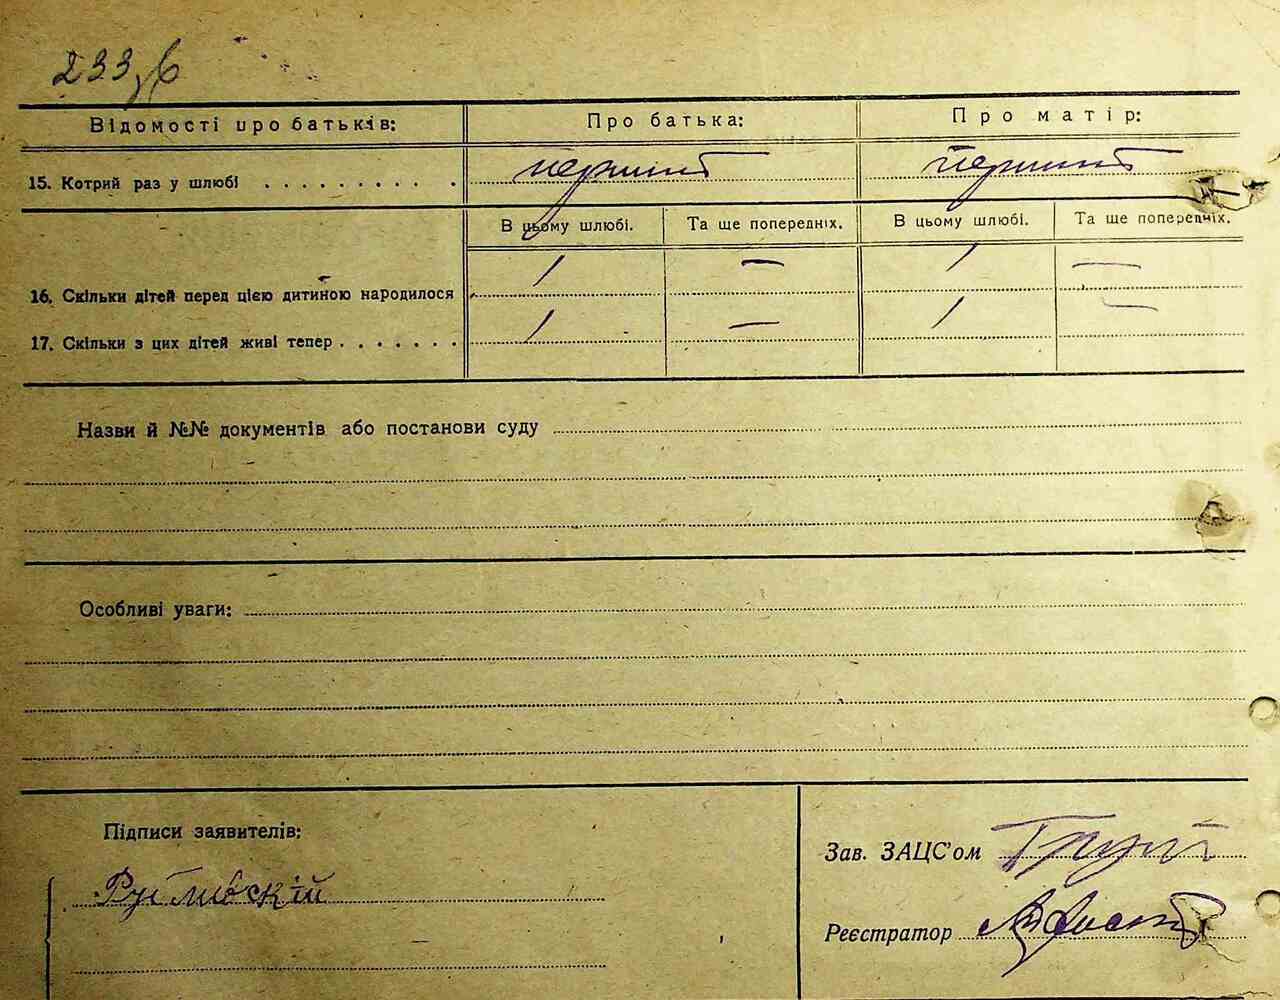 233
Відомості про батьків:
Про батька:
Про матір:
15. Котрий раз у шлюбі . . . . . . . . . .
перший
перший
В цьому шлюбі.
Та ще попередніх.
В цьому шлюбі.
Та ще попередніх.
16. Скільки дітей перед цією дитиною народилося
1
—
1
—
17. Скільки з цих дітей живі тепер . . . . . . .
1
—
1
—
Назви й №№ документів або постанови суду
Особливі уваги:
Підписи заявителів:
Зав. ЗАЦС'ом
Реєстратор